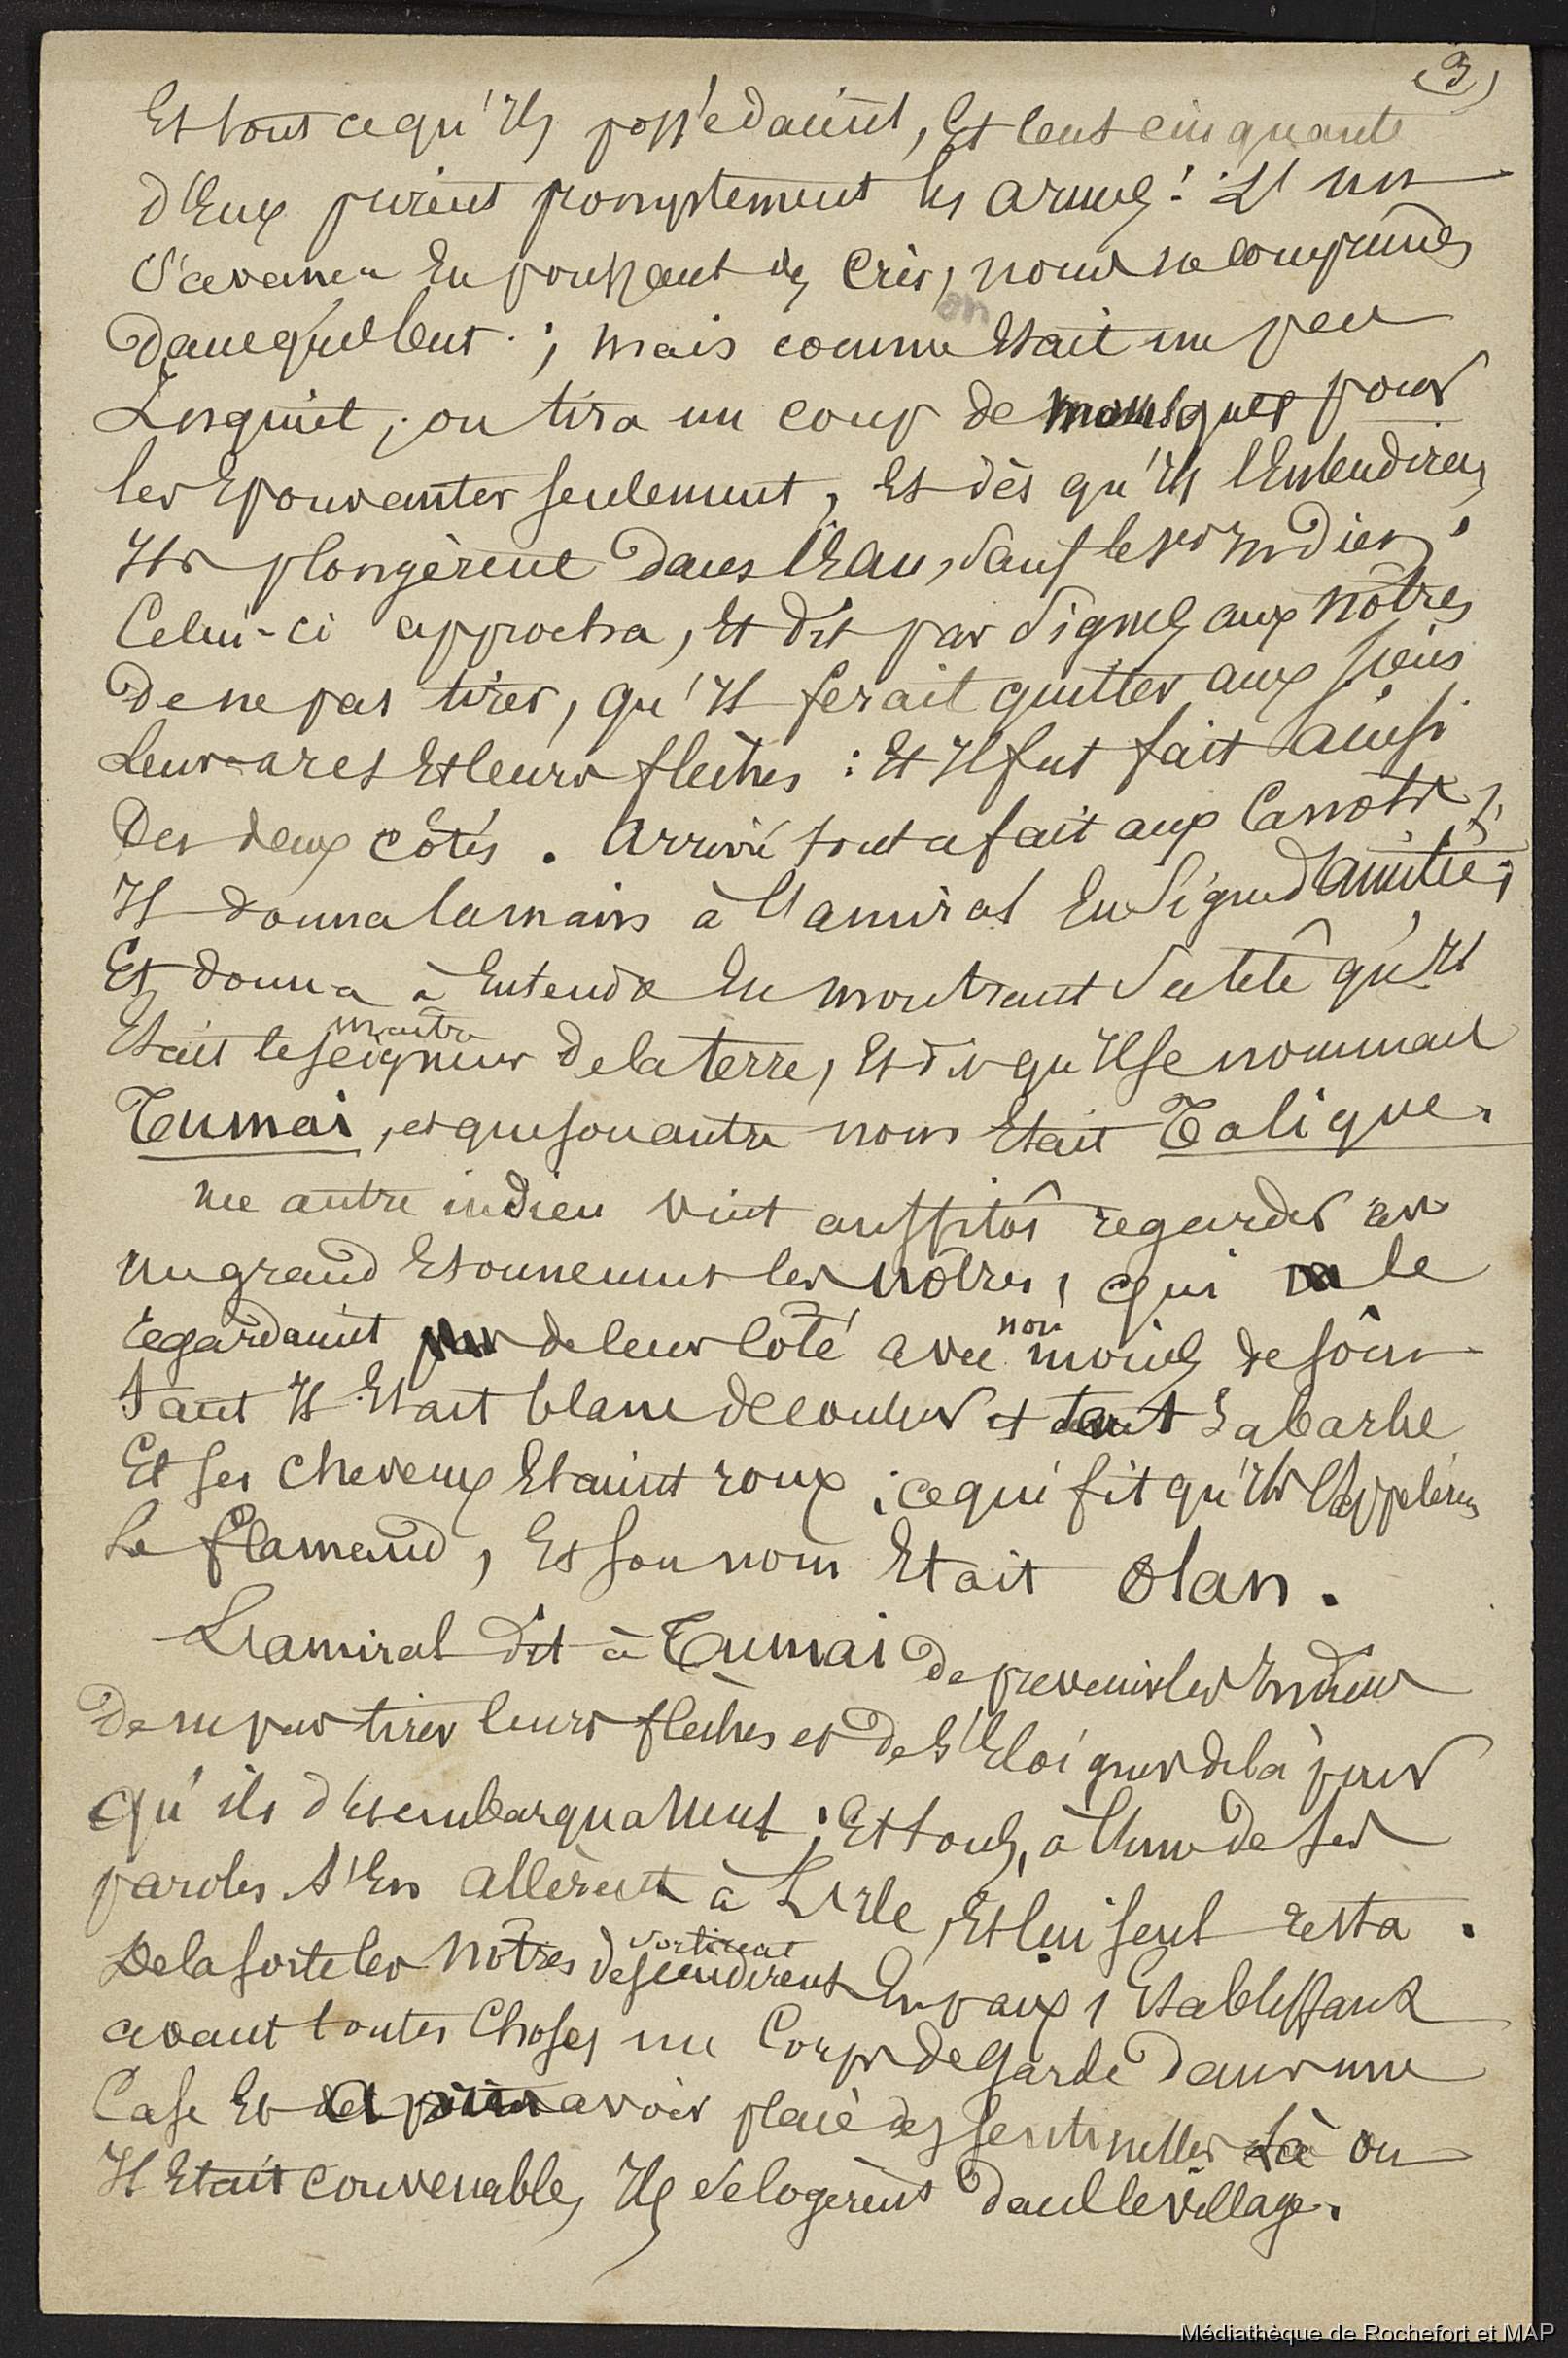 (3)
Et tout ce qu'Ils possédaient, Et Cent cinquante
d'Eux prirent promptement les armes : L'un
s'avança En poussant des Cris, nous ne comprimes
dans quel but ; mais comme on Etait un peu
Inquiet, on tira un coup de mousquet pour
les Epouvanter seulement, Et dès qu'Ils l'Entendirent
Ils plongèrent dans l'Eau, sauf le 1er Indien ;
Celui-ci approcha, Et dit par signes aux nôtres
de ne pas tirer, qu'Il ferait quitter aux siens
Leurs arcs Et leurs flèches : Et Il fut fait ainsi
Des deux côtés . Arrivé tout a fait aux Canots,
Il donna la main à l'amiral En signe d'amitié,
Et donna à Entendre En montrant sa tête qu'Il
Etait le maitre
seigneur de la terre, Et dit qu'Il se nommait
Tumai, et que son autre nom Etait Talique.
un autre indien vint aussitôt regarder avec
un grand Etonnement les nôtres, qui le
regardaient de leur Côté avec non moins de soin
Tant Il Etait blanc de couleur et tant sa barbe
Et ses cheveux Etaient roux ; ce qui fit qu'Ils l'appelèrent
Le flamand, Et son nom Etait Olan.
L'amiral dit à Tumai de prevenir les Indiens
de ne pas tirer leurs flèches et de s'Eloigner de là pour
qu'ils désembarquassent ; Et tous, à l'une de ses
paroles s'En allèrent à L'Ile, Et lui seul resta .
De la sorte les nôtres descendirent sortirent En paix, Etablissant
avant toutes Choses un Corps de Garde dans une
Case Et après avoir placé des sentinelles là où
Il Etait convenable, Ils se logèrent dans le village.
Médiathèque de Rochefort et MAP